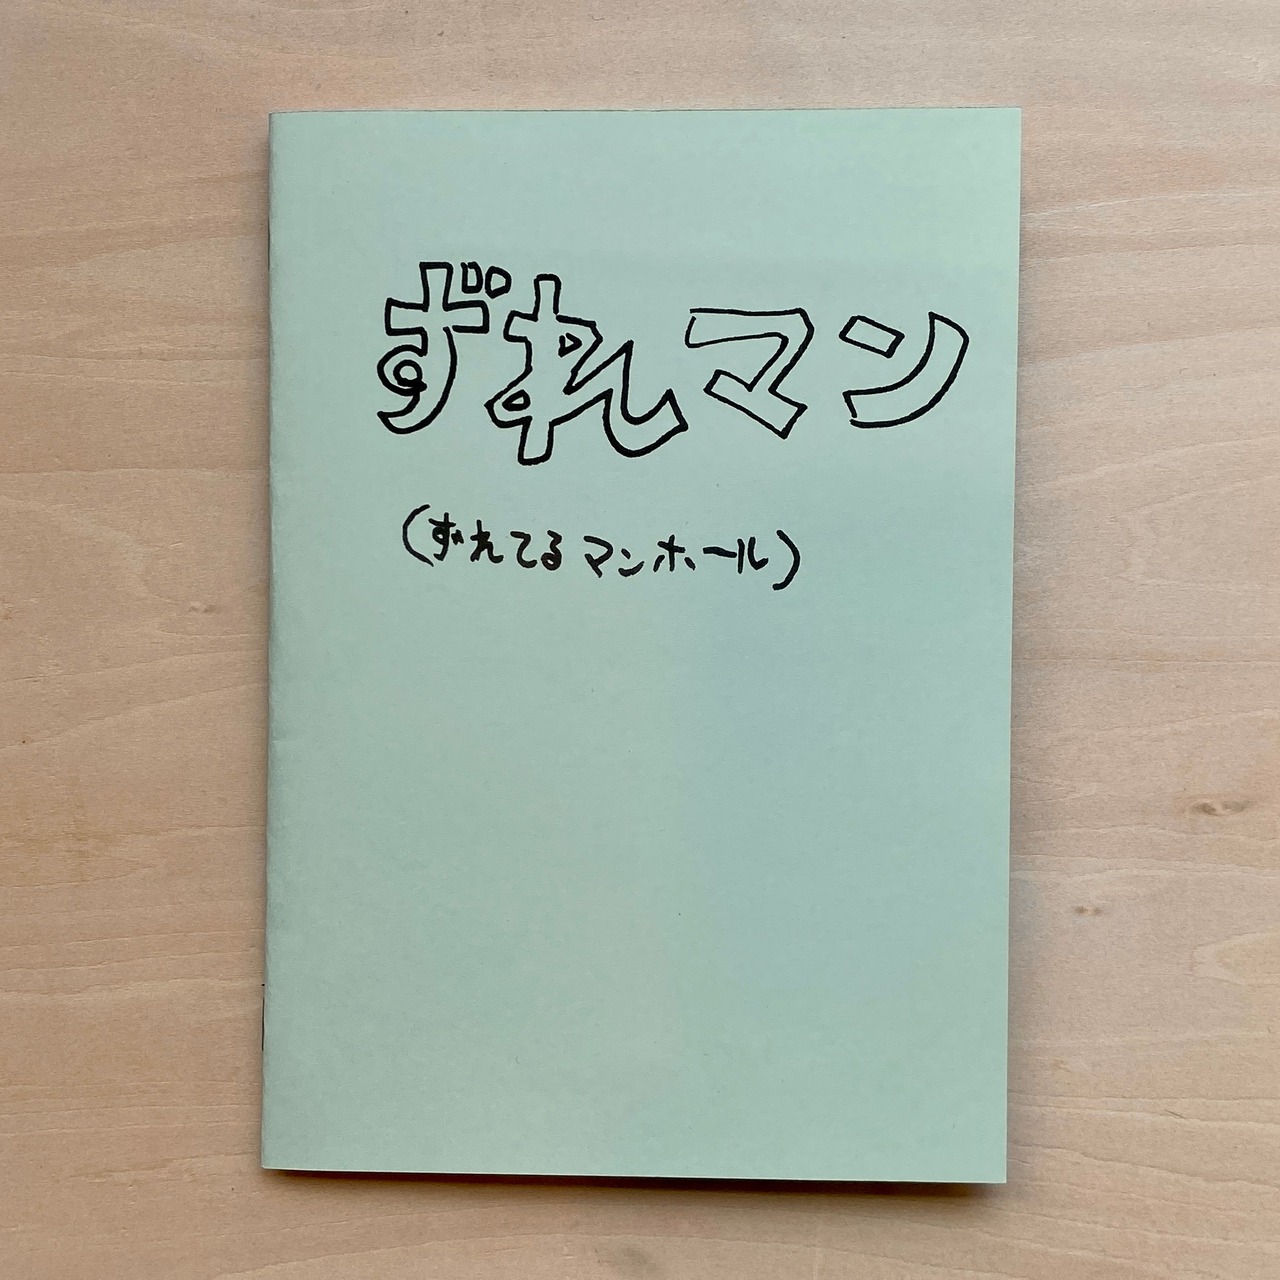 ずれマン
(ずれてるマンホール)